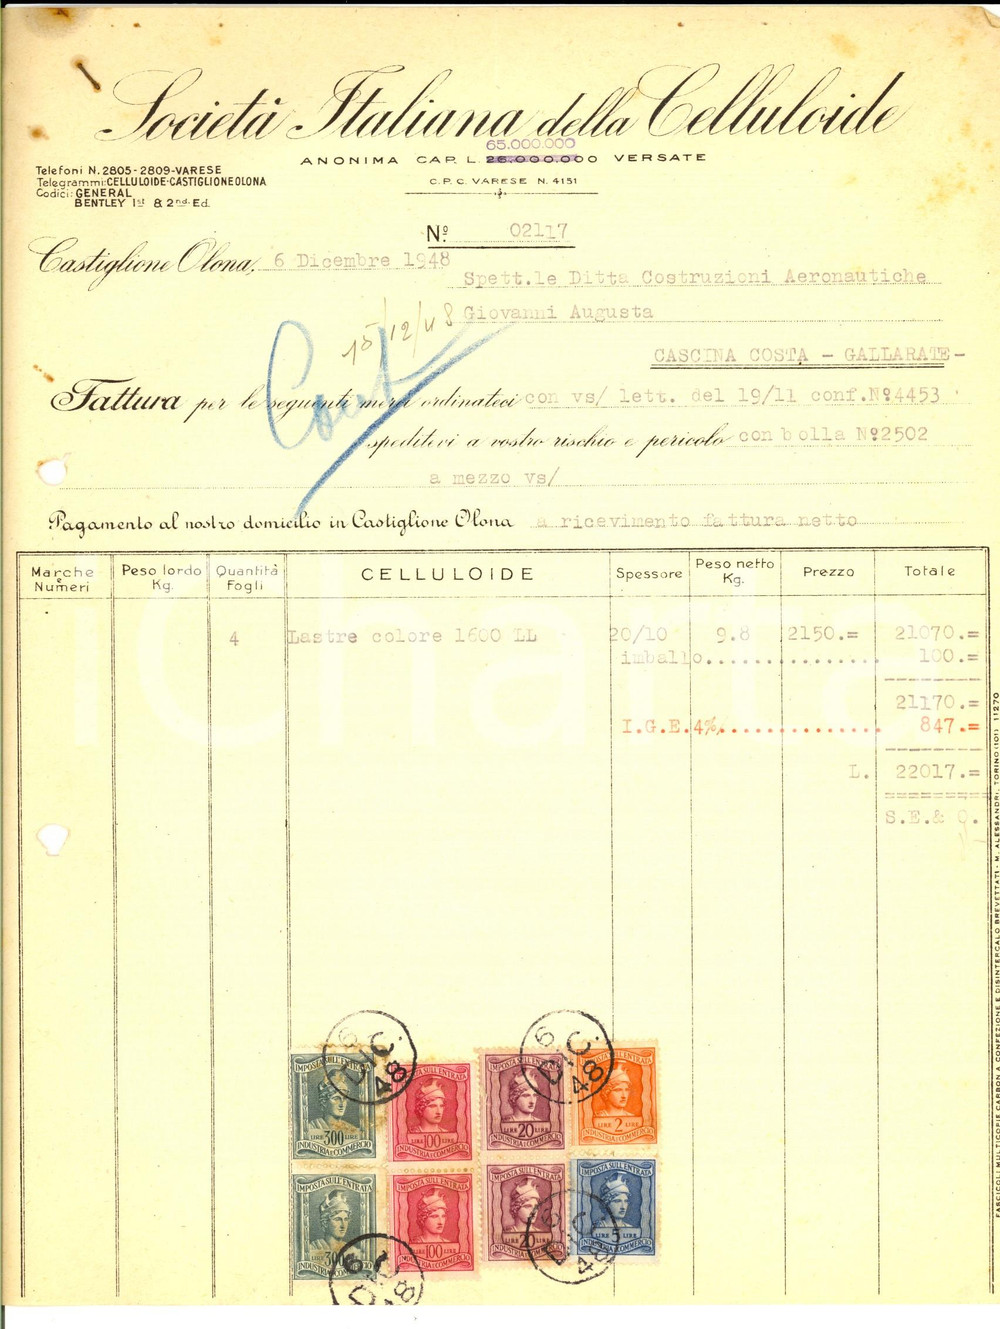 Società Italiana della Celluloide
65.000.000
ANONIMA CAP. L. 26.000.000 VERSATE
C.P.C. VARESE N. 4151
Telefoni N. 2805 - 2809 - VARESE
Telegrammi: CELLULOIDE - CASTIGLIONE OLONA
Codici: GENERAL
BENTLEY 1st & 2nd Ed.
Nº. 02117
Castiglione Olona, 6 Dicembre 1948
Spett.le Ditta Costruzioni Aeronautiche
Giovanni Augusta
15/12/48
CASCINA COSTA - GALLARATE-
Fattura per le seguenti merci ordinateci con vs/ lett. del 19/11 conf.Nº4453
speditevi a vostro rischio e pericolo con bolla Nº2502
a mezzo vs/
Pagamento al nostro domicilio in Castiglione Olona a ricevimento fattura netto
Marche e Numeri Peso lordo Kg. Quantità Fogli CELLULOIDE Spessore Peso netto Kg. Prezzo Totale
4 Lastre colore 1600 LL 20/10 9.8 2150.= 21070.=
imballo................ 100.=
21170.=
I.G.E.4%............... 847.=
L. 22017.=
S.E.& O.
iCharta
FASCICOLI MULTICOPIE CARBON A CONFEZIONE E DISINTERCALO BREVETTATI - M. ALESSANDRI, TORINO (101) 11270
6 DIC. 48
6 DIC. 48
IMPOSTA SULL'ENTRATA
LIRE 300 LIRE
INDUSTRIA E COMMERCIO
IMPOSTA SULL'ENTRATA
LIRE 100 LIRE
INDUSTRIA E COMMERCIO
IMPOSTA SULL'ENTRATA
LIRE 20 LIRE
INDUSTRIA E COMMERCIO
IMPOSTA SULL'ENTRATA
LIRE 2 LIRE
INDUSTRIA E COMMERCIO
IMPOSTA SULL'ENTRATA
300 LIRE
INDUSTRIA E COMMERCIO
IMPOSTA SULL'ENTRATA
LIRE 100 LIRE
INDUSTRIA E COMMERCIO
IMPOSTA SULL'ENTRATA
LIRE 20
INDUSTRIA E COMMERCIO
IMPOSTA SULL'ENTRATA
LIRE 5 LIRE
INDUSTRIA E COMMERCIO
6 DIC. 48
6 DIC. 48